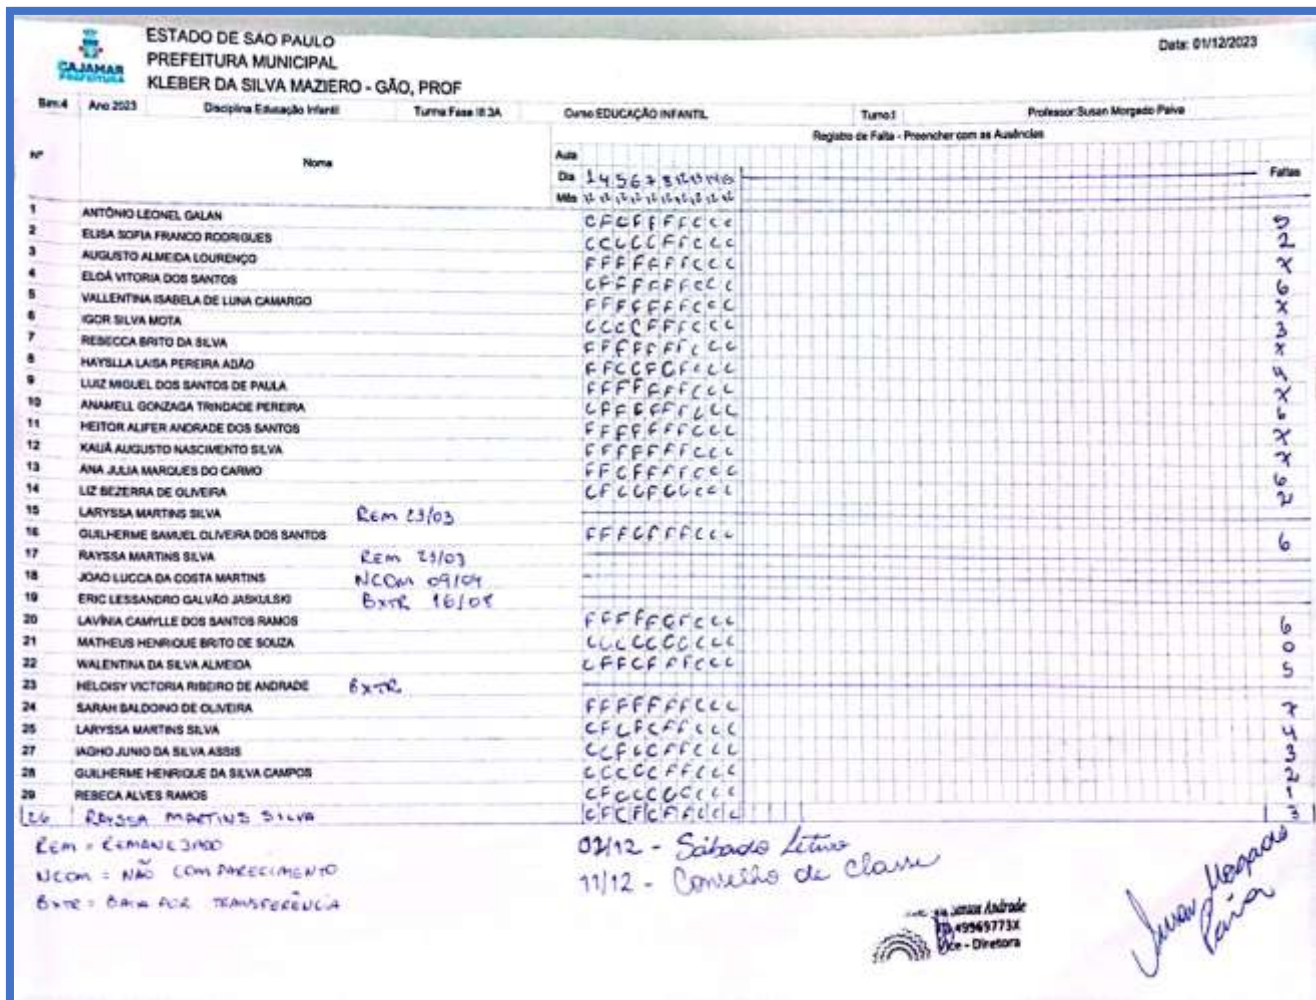 ESTADO DE SAO PAULO
PREFEITURA MUNICIPAL
KLEBER DA SILVA MAZIERO - GÃO, PROF
Data: 01/12/2023
CAJAMAR
PREFEITURA
Bim:4 Ano 2023 Disciplina Educação Infantil Turma Fase III 3A Curso EDUCAÇÃO INFANTIL Turno: Professor: Susan Morgado Paiva
Registro de Falta - Preencher com as Ausências
Nº Nome Aula
Dia 1 4 5 6 7 8 12 13 14 15 Faltas
Mês 12 12 12 12 12 12 12 12 12 12
1 ANTÔNIO LEONEL GALAN 5
2 ELISA SOFIA FRANCO RODRIGUES C C C C C F F C C C 2
3 AUGUSTO ALMEIDA LOURENÇO F F F F F F F C C C 7
4 ELOÁ VITORIA DOS SANTOS C F F F F F F C C C 6
5 VALLENTINA ISABELA DE LUNA CAMARGO F F F F F F F C C C 7
6 IGOR SILVA MOTA C C C C F F F C C C 3
7 REBECCA BRITO DA SILVA F F F F F F F C C C 7
8 HAYSLLA LAISA PEREIRA ADÃO 4
9 LUIZ MIGUEL DOS SANTOS DE PAULA F F F F F F F C C C 7
10 ANAMELL GONZAGA TRINDADE PEREIRA C F F F F F F C C C 6
11 HEITOR ALIFER ANDRADE DOS SANTOS F F F F F F F C C C 7
12 KAUÃ AUGUSTO NASCIMENTO SILVA F F F F F F F C C C 7
13 ANA JULIA MARQUES DO CARMO F F C F F F F C C C 6
14 LIZ BEZERRA DE OLIVEIRA C F C C F C C C C C 2
15 LARYSSA MARTINS SILVA REM 23/03
16 GUILHERME SAMUEL OLIVEIRA DOS SANTOS F F F C F F F C C C 6
17 RAYSSA MARTINS SILVA REM 23/03
18 JOAO LUCCA DA COSTA MARTINS NCOM 09/04
19 ERIC LESSANDRO GALVÃO JASKULSKI BXTR 16/08
20 LAVÍNIA CAMYLLE DOS SANTOS RAMOS F F F F F C F C C C 6
21 MATHEUS HENRIQUE BRITO DE SOUZA C C C C C C C C C C 0
22 WALENTINA DA SILVA ALMEIDA C F F C F F F C C C 5
23 HELOISY VICTORIA RIBEIRO DE ANDRADE BXTR
24 SARAH BALDOINO DE OLIVEIRA F F F F F F F C C C 7
25 LARYSSA MARTINS SILVA C F C F C F F C C C 4
27 IAGHO JUNIO DA SILVA ASSIS C C F C C F F C C C 3
28 GUILHERME HENRIQUE DA SILVA CAMPOS C C C C C F F C C C 2
29 REBECA ALVES RAMOS C F C C C C C C C C 1
26 RAYSSA MARTINS SILVA 3
REM = REMANEJADO
NCOM = NÃO COMPARECIMENTO
BXTR = BAIXA POR TRANSFERÊNCIA
02/12 - Sábado Letivo
11/12 - Conselho de Classe
Andrade
49969773X
Vice - Diretora
Susan Morgado
Paiva